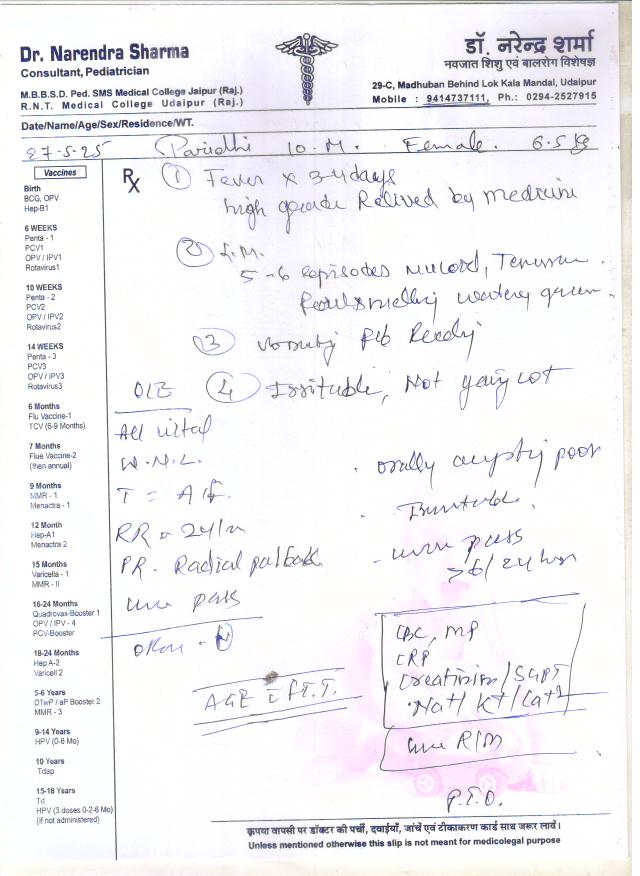 Dr. Narendra Sharma
Consultant, Pediatrician
M.B.B.S.D. Ped. SMS Medical College Jaipur (Raj.)
R.N.T. Medical College Udaipur (Raj.)
डॉ. नरेन्द्र शर्मा
नवजात शिशु एवं बालरोग विशेषज्ञ
29-C, Madhuban Behind Lok Kala Mandal, Udaipur
Mobile : 9414737111, Ph.: 0294-2527915
Date/Name/Age/Sex/Residence/WT.
27-5-25 Paridhi 10.M. Female. 6.5 kg
Vaccines
Birth
BCG, OPV
Hep-B1
6 WEEKS
Penta - 1
PCV1
OPV / IPV1
Rotavirus1
10 WEEKS
Penta - 2
PCV2
OPV / IPV2
Rotavirus2
14 WEEKS
Penta - 3
PCV3
OPV / IPV3
Rotavirus3
6 Months
Flu Vaccine-1
TCV (6-9 Months)
7 Month
Flue Vaccine-2
(then annual)
9 Months
MMR - 1
Menactra - 1
12 Month
Hep-A1
Menactra 2
15 Months
Varicella - 1
MMR - II
16-24 Months
Quadrovax-Booster 1
OPV / IPV - 4
PCV-Booster
18-24 Months
Hep A-2
Varicell 2
5-6 Years
DTwP / aP Booster 2
MMR - 3
9-14 Years
HPV (0-6 Mo)
10 Years
Tdap
15-18 Years
Td
HPV (3 doses 0-2-6 Mo)
(if not administered)
Rx
1 Fever x 3-4 days
high grade Relived by medicine
2 L.M.
5-6 episodes mucoid,
watery green
3
4 Irritable, Not
O/E
All vital
W.N.L.
T = Af.
RR = 24/m
PR. Radial
pass
orally poor
pass
>6/24 hrs
AGE c
CBC, MP
CRP
Creatinine/SGPT
Na+/K+/Ca+2
R/M
P.T.O.
कृपया वापसी पर डॉक्टर की पर्ची, दवाईयाँ, जांचें एवं टीकाकरण कार्ड साथ जरूर लावें।
Unless mentioned otherwise this slip is not meant for medicolegal purpose